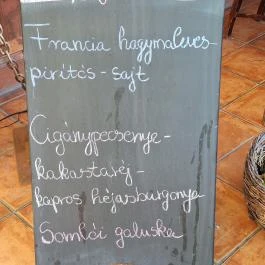 Francia hagymaleves-
pirítós-sajt
Cigánypecsenye-
kakastaréj-
kapros héjasburgonya
Somlói galuska